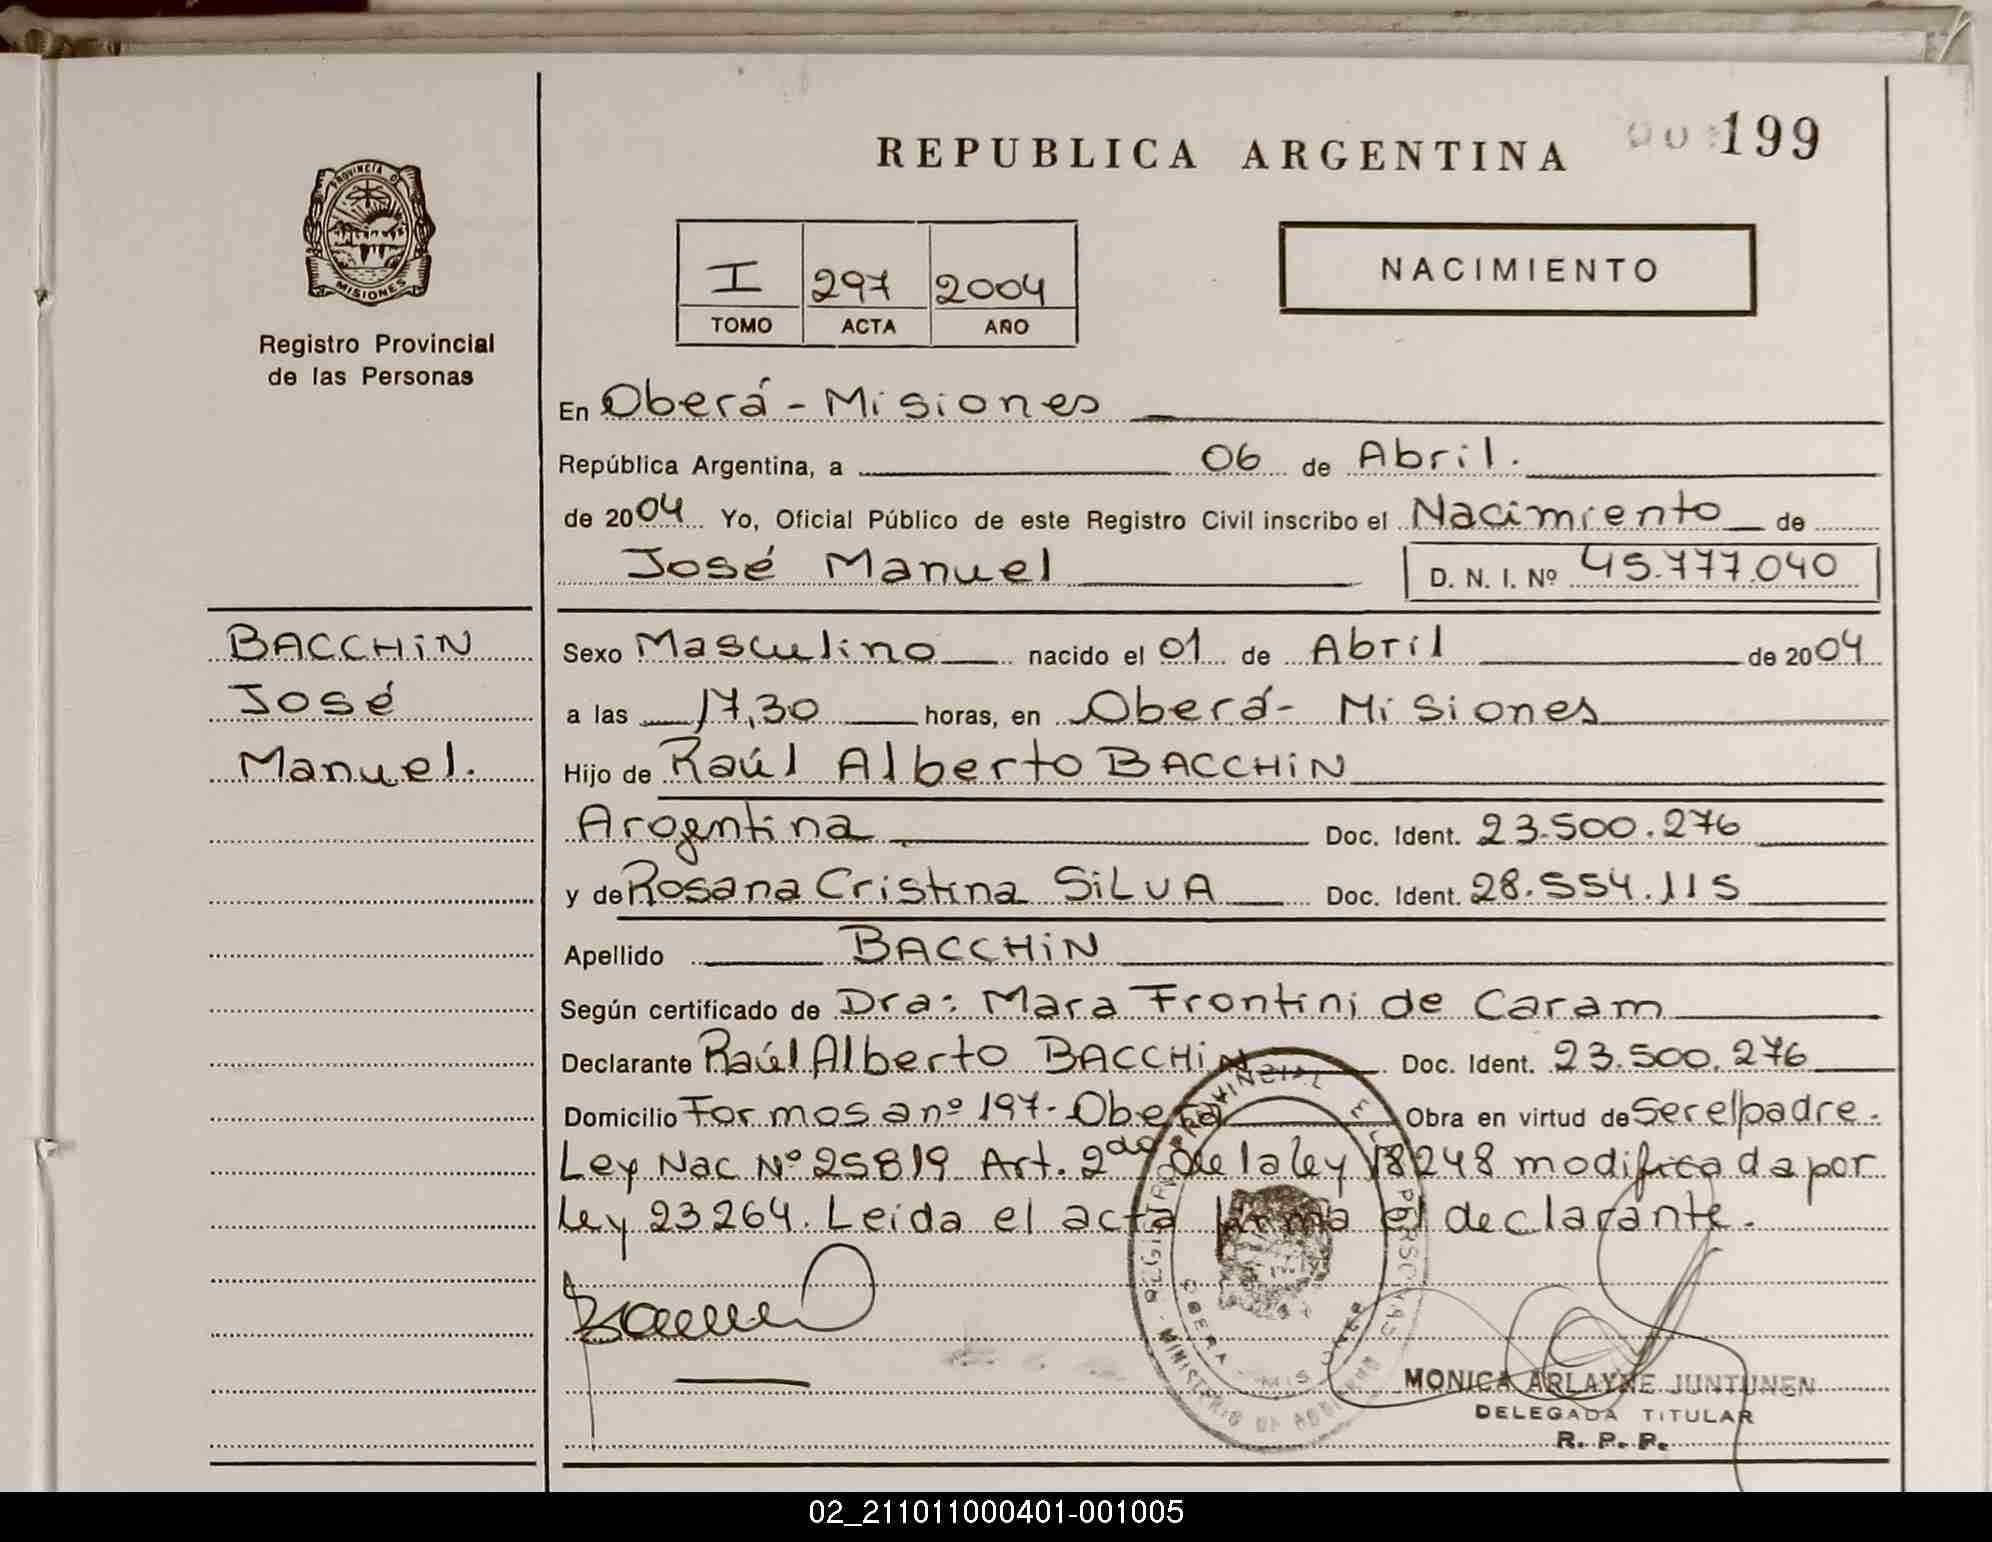 REPUBLICA ARGENTINA
199
PROVINCIA DE
MISIONES
Registro Provincial
de las Personas
I 297 2004
TOMO ACTA AÑO
NACIMIENTO
En Oberá - Misiones
República Argentina, a 06 de Abril.
de 2004 Yo, Oficial Público de este Registro Civil inscribo el Nacimiento de
José Manuel D. N. I. Nº 45.777.040
BACCHiN
José
Manuel.
Sexo Masculino nacido el 01 de Abril de 2004
a las 17,30 horas, en Oberá - Misiones
Hijo de Raúl Alberto BACCHiN
Arogentina Doc. Ident. 23.500.276
y de Rosana Cristina SiLVA Doc. Ident. 28.554.115
Apellido BACCHiN
Según certificado de Dra: Mara Frontini de Caram
Declarante Raúl Alberto BACCHiN Doc. Ident. 23.500.276
Domicilio Formosa nº 197 - Oberá Obra en virtud de Ser el padre.
Ley Nac Nº 25819 Art. 2do de la ley 18248 modificada por
ley 23264. Leida el acta firma el declarante.
REGISTRO PROVINCIAL DE LAS PERSONAS
OBERA - MISIONES
MINISTERIO DE GOBIERNO
MONICA ARLAYNE JUNTUNEN
DELEGADA TITULAR
R. P. P.
02_211011000401-001005